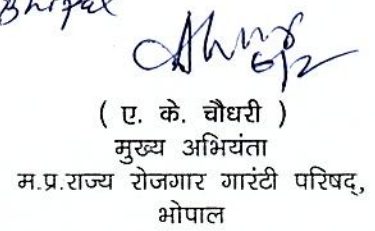 Bhopal
6/2
( ए. के. चौधरी )
मुख्य अभियंता
म.प्र.राज्य रोजगार गारंटी परिषद्,
भोपाल